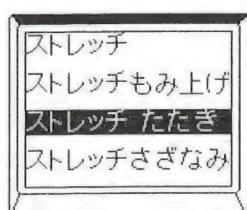 ストレッチ
ストレッチもみ上げ
ストレッチ たたき
ストレッチさざなみ